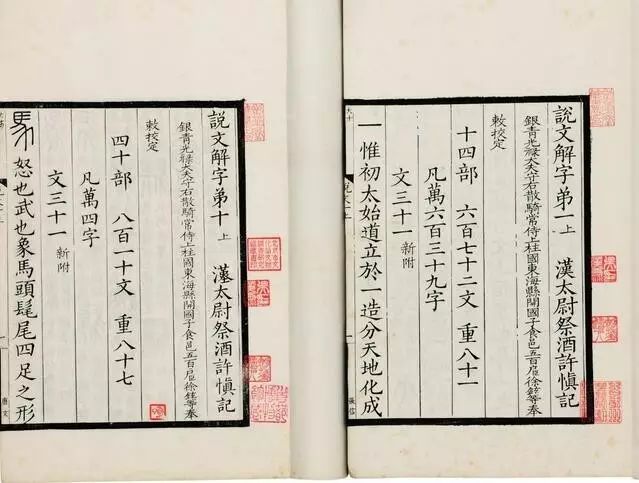 說文解字弟一上 漢太尉祭酒許慎記
銀青光祿大夫守右散騎常侍上柱國東海縣開國子食邑五百戶臣徐鉉等奉
敕校定
十四部 六百七十二文 重八十一
凡萬六百三十九字
文三十一 新附
一惟初太始道立於一造分天地化成
說文解字弟十上 漢太尉祭酒許慎記
銀青光祿大夫守右散騎常侍上柱國東海縣開國子食邑五百戶臣徐鉉等奉
敕校定
四十部 八百一十文 重八十七
凡萬四字
文三十一 新附
馬怒也武也象馬頭髦尾四足之形